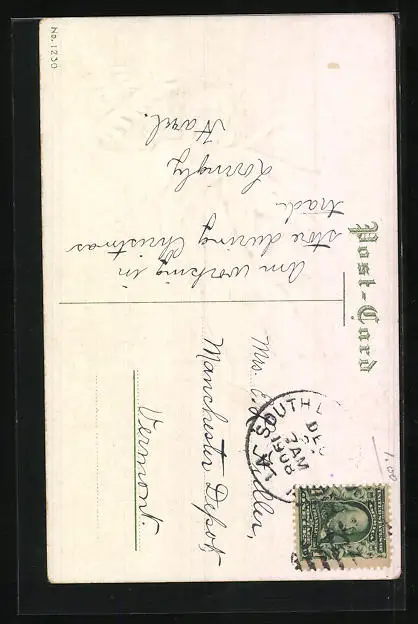 No. 1230
Post-Card
Am working in
store during Christmas
trade.
Lovingly
Hazel.
Mrs. C. H. Miller,
Manchester Depot,
Vermont.
SOUTH
DEC
7 AM
1908
1.00